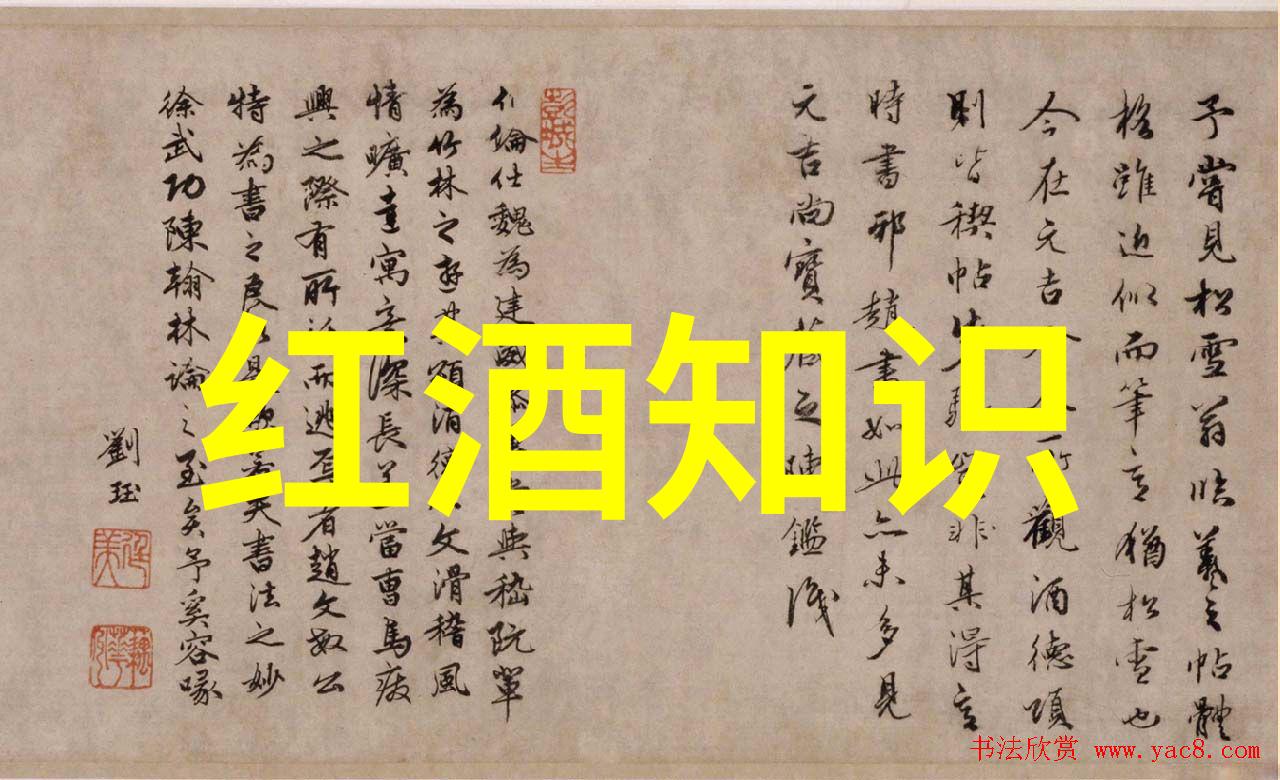 予嘗見松雪翁臨羲之帖體
格雖近似而筆意猶松雪也
今在元吉觀酒德頌
則皆稧帖非其得意
時書邪趙書如此亦未多見
元吉尚寶藏之陳鑑識
伶仕魏為建與嵇阮輩
為竹林之遊頌消文滑稽風
情曠達寓意深長當曹馬疾
興之際有所而逃焉者趙文敏公
特為書之書法之妙
徐武功陳翰林論之至矣予奚容喙
劉珏
红酒知识
书法欣赏 www.yac8.com